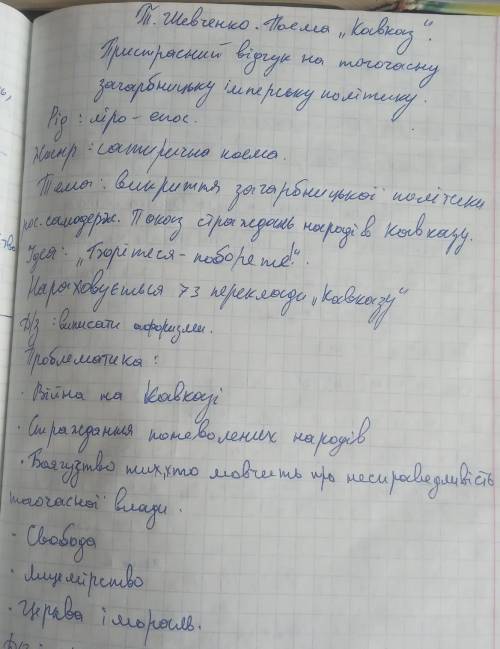 Т. Шевченко. Поема „Кавказ".
Пристрасний відгук на тогочасну
загарбницьку імперську політику.
Рід: ліро-епос.
Жанр: сатирична поема.
Тема: викриття загарбницької політики
рос. самодерж. Показ страждань народів Кавказу.
Ідея: „Борітеся - поборете!".
Нараховується 73 переклади „Кавказу"
Д/з: виписати афоризми.
Проблематика:
· Війна на Кавказі
· Страждання поневолених народів
· Боягузтво тих, хто мовчить про несправедливість
тогочасної влади.
· Свобода
· Лицемірство
· Церква і мораль.